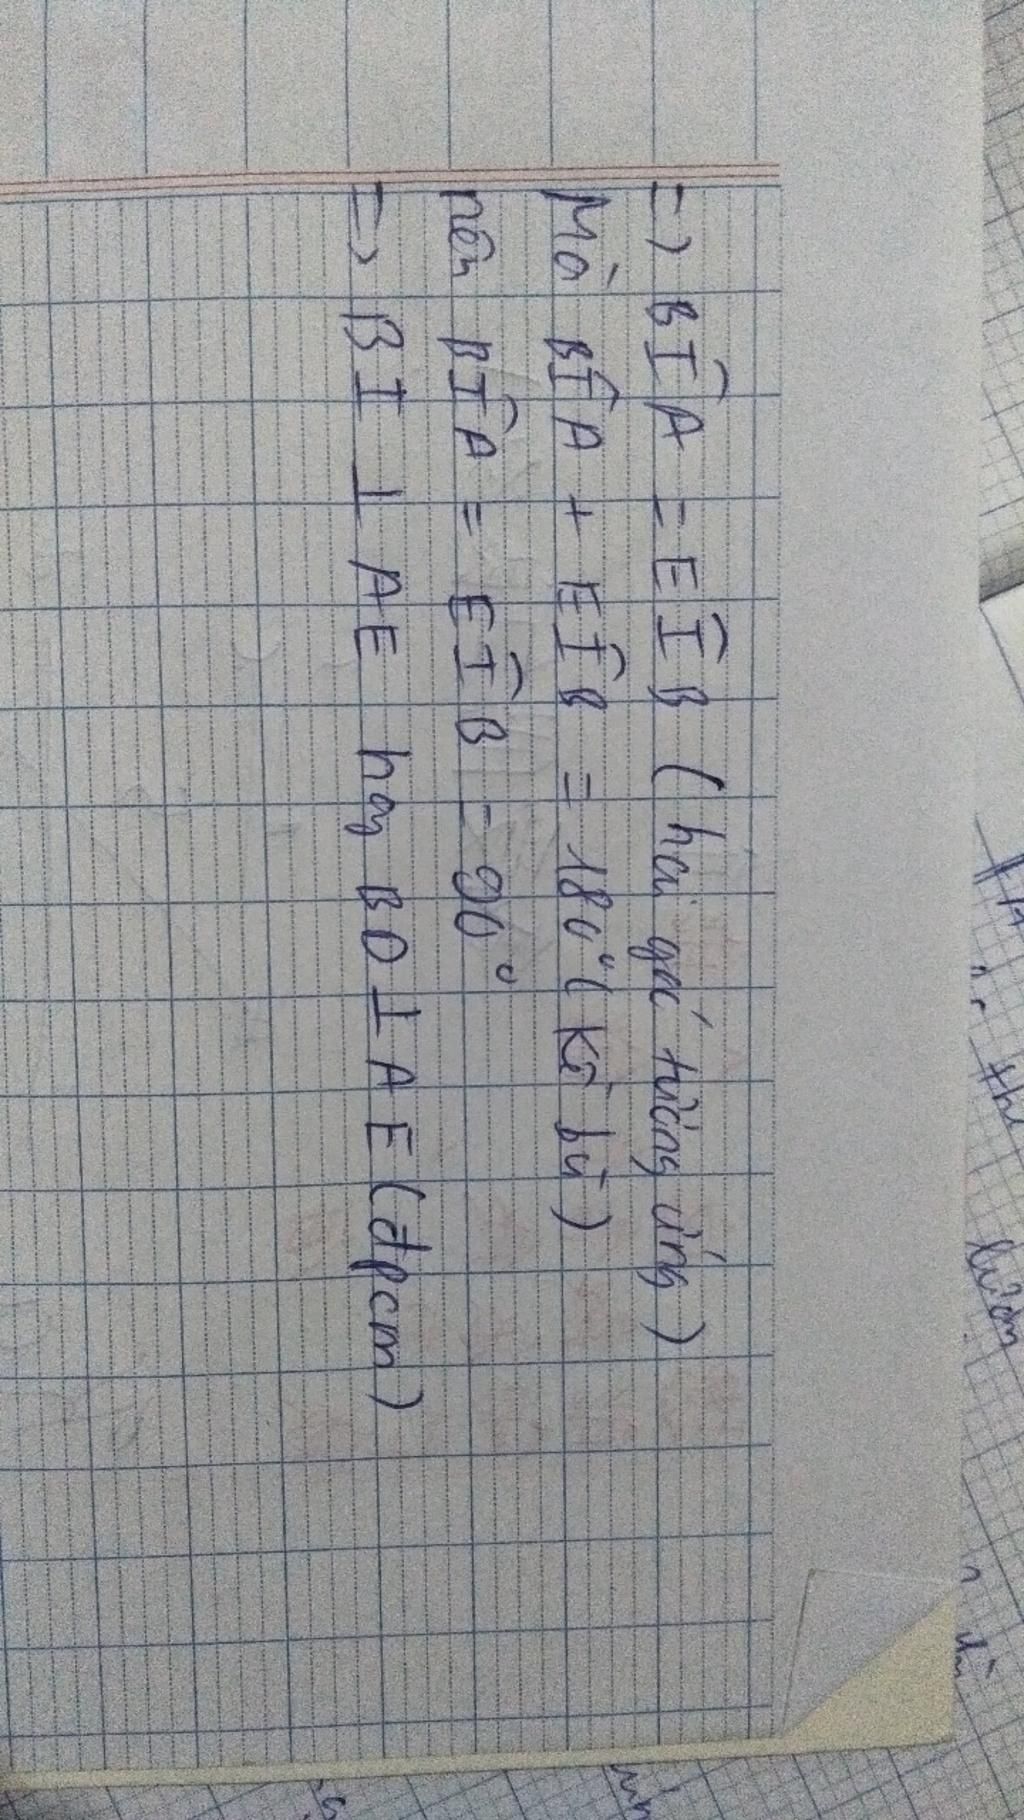 => BÎA = EÎB (hai goć tương ứng)
Mà BÎA + EÎB = 180° (kề bù)
nên BÎA = EÎB = 90°
=> BI ⊥ AE hay BD ⊥ AE (đpcm)